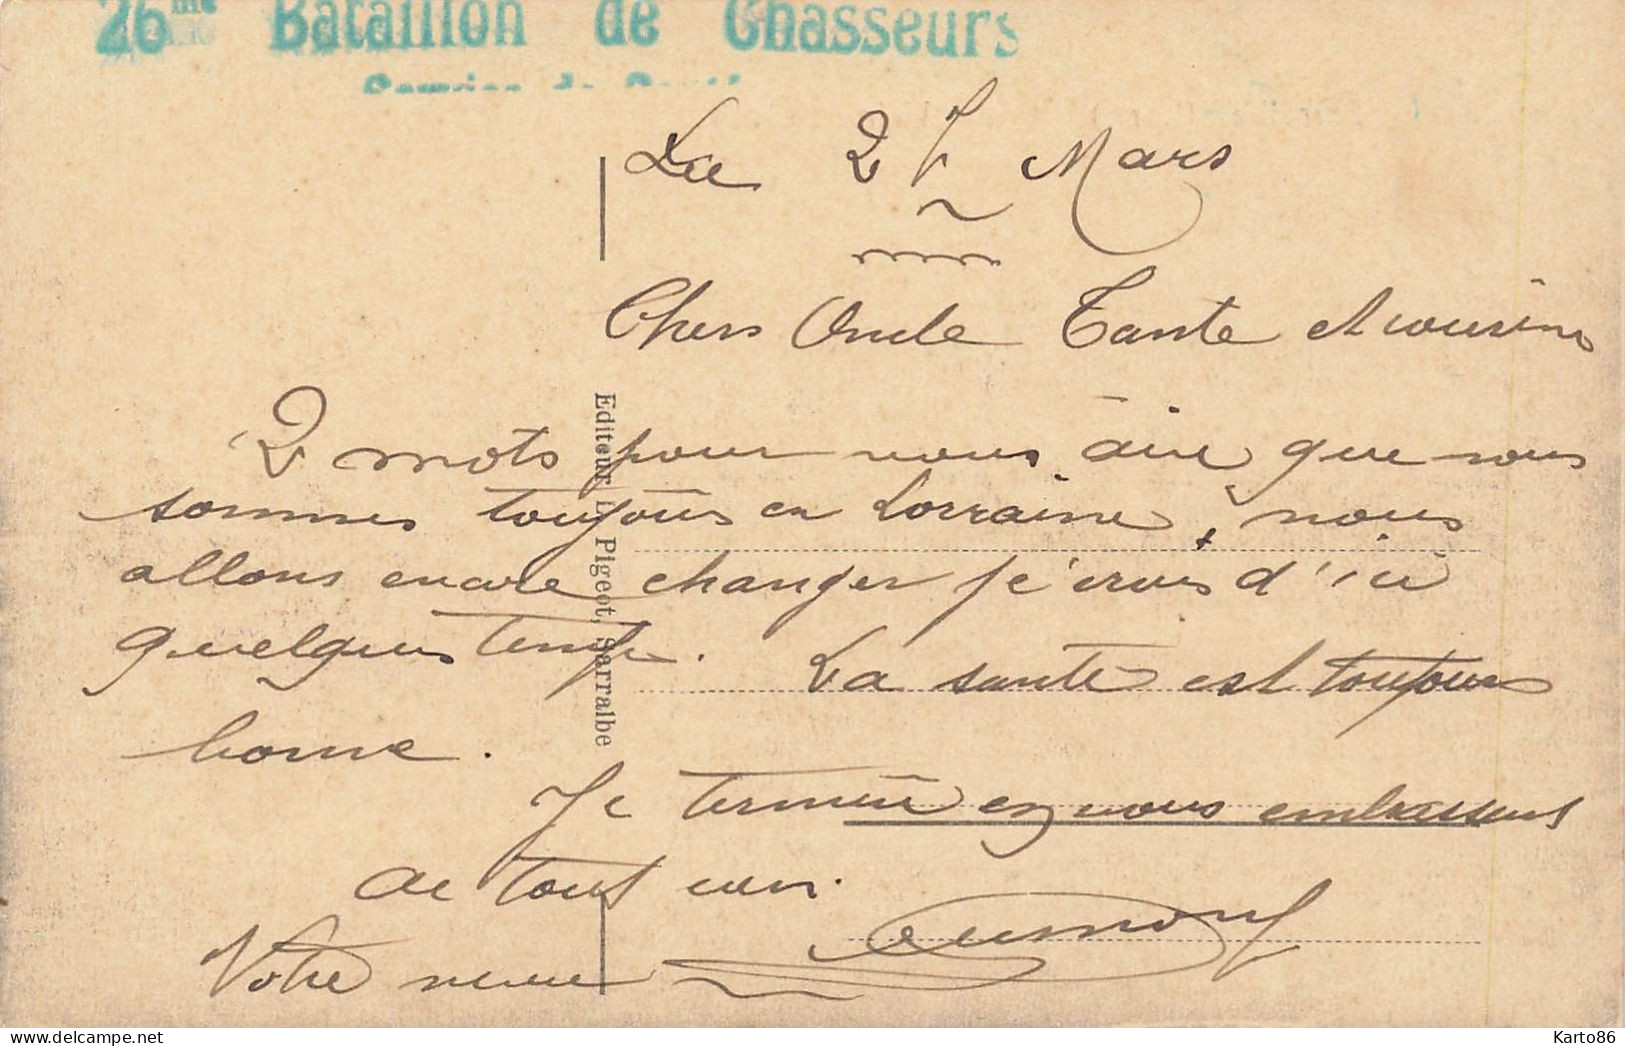 26me Bataillon de Chasseurs
Le 27 Mars
Chers Oncle Tante et cousins
2 mots pour vous dire que nous
sommes toujours en Lorraine, nous
allons encore changer je crois d'ici
quelques temps. La santé est toujours
bonne.
Je termine en vous embrassant
de tout cœur.
Votre neveu
Editeur L. Pigeot, Sarralbe
Karto86